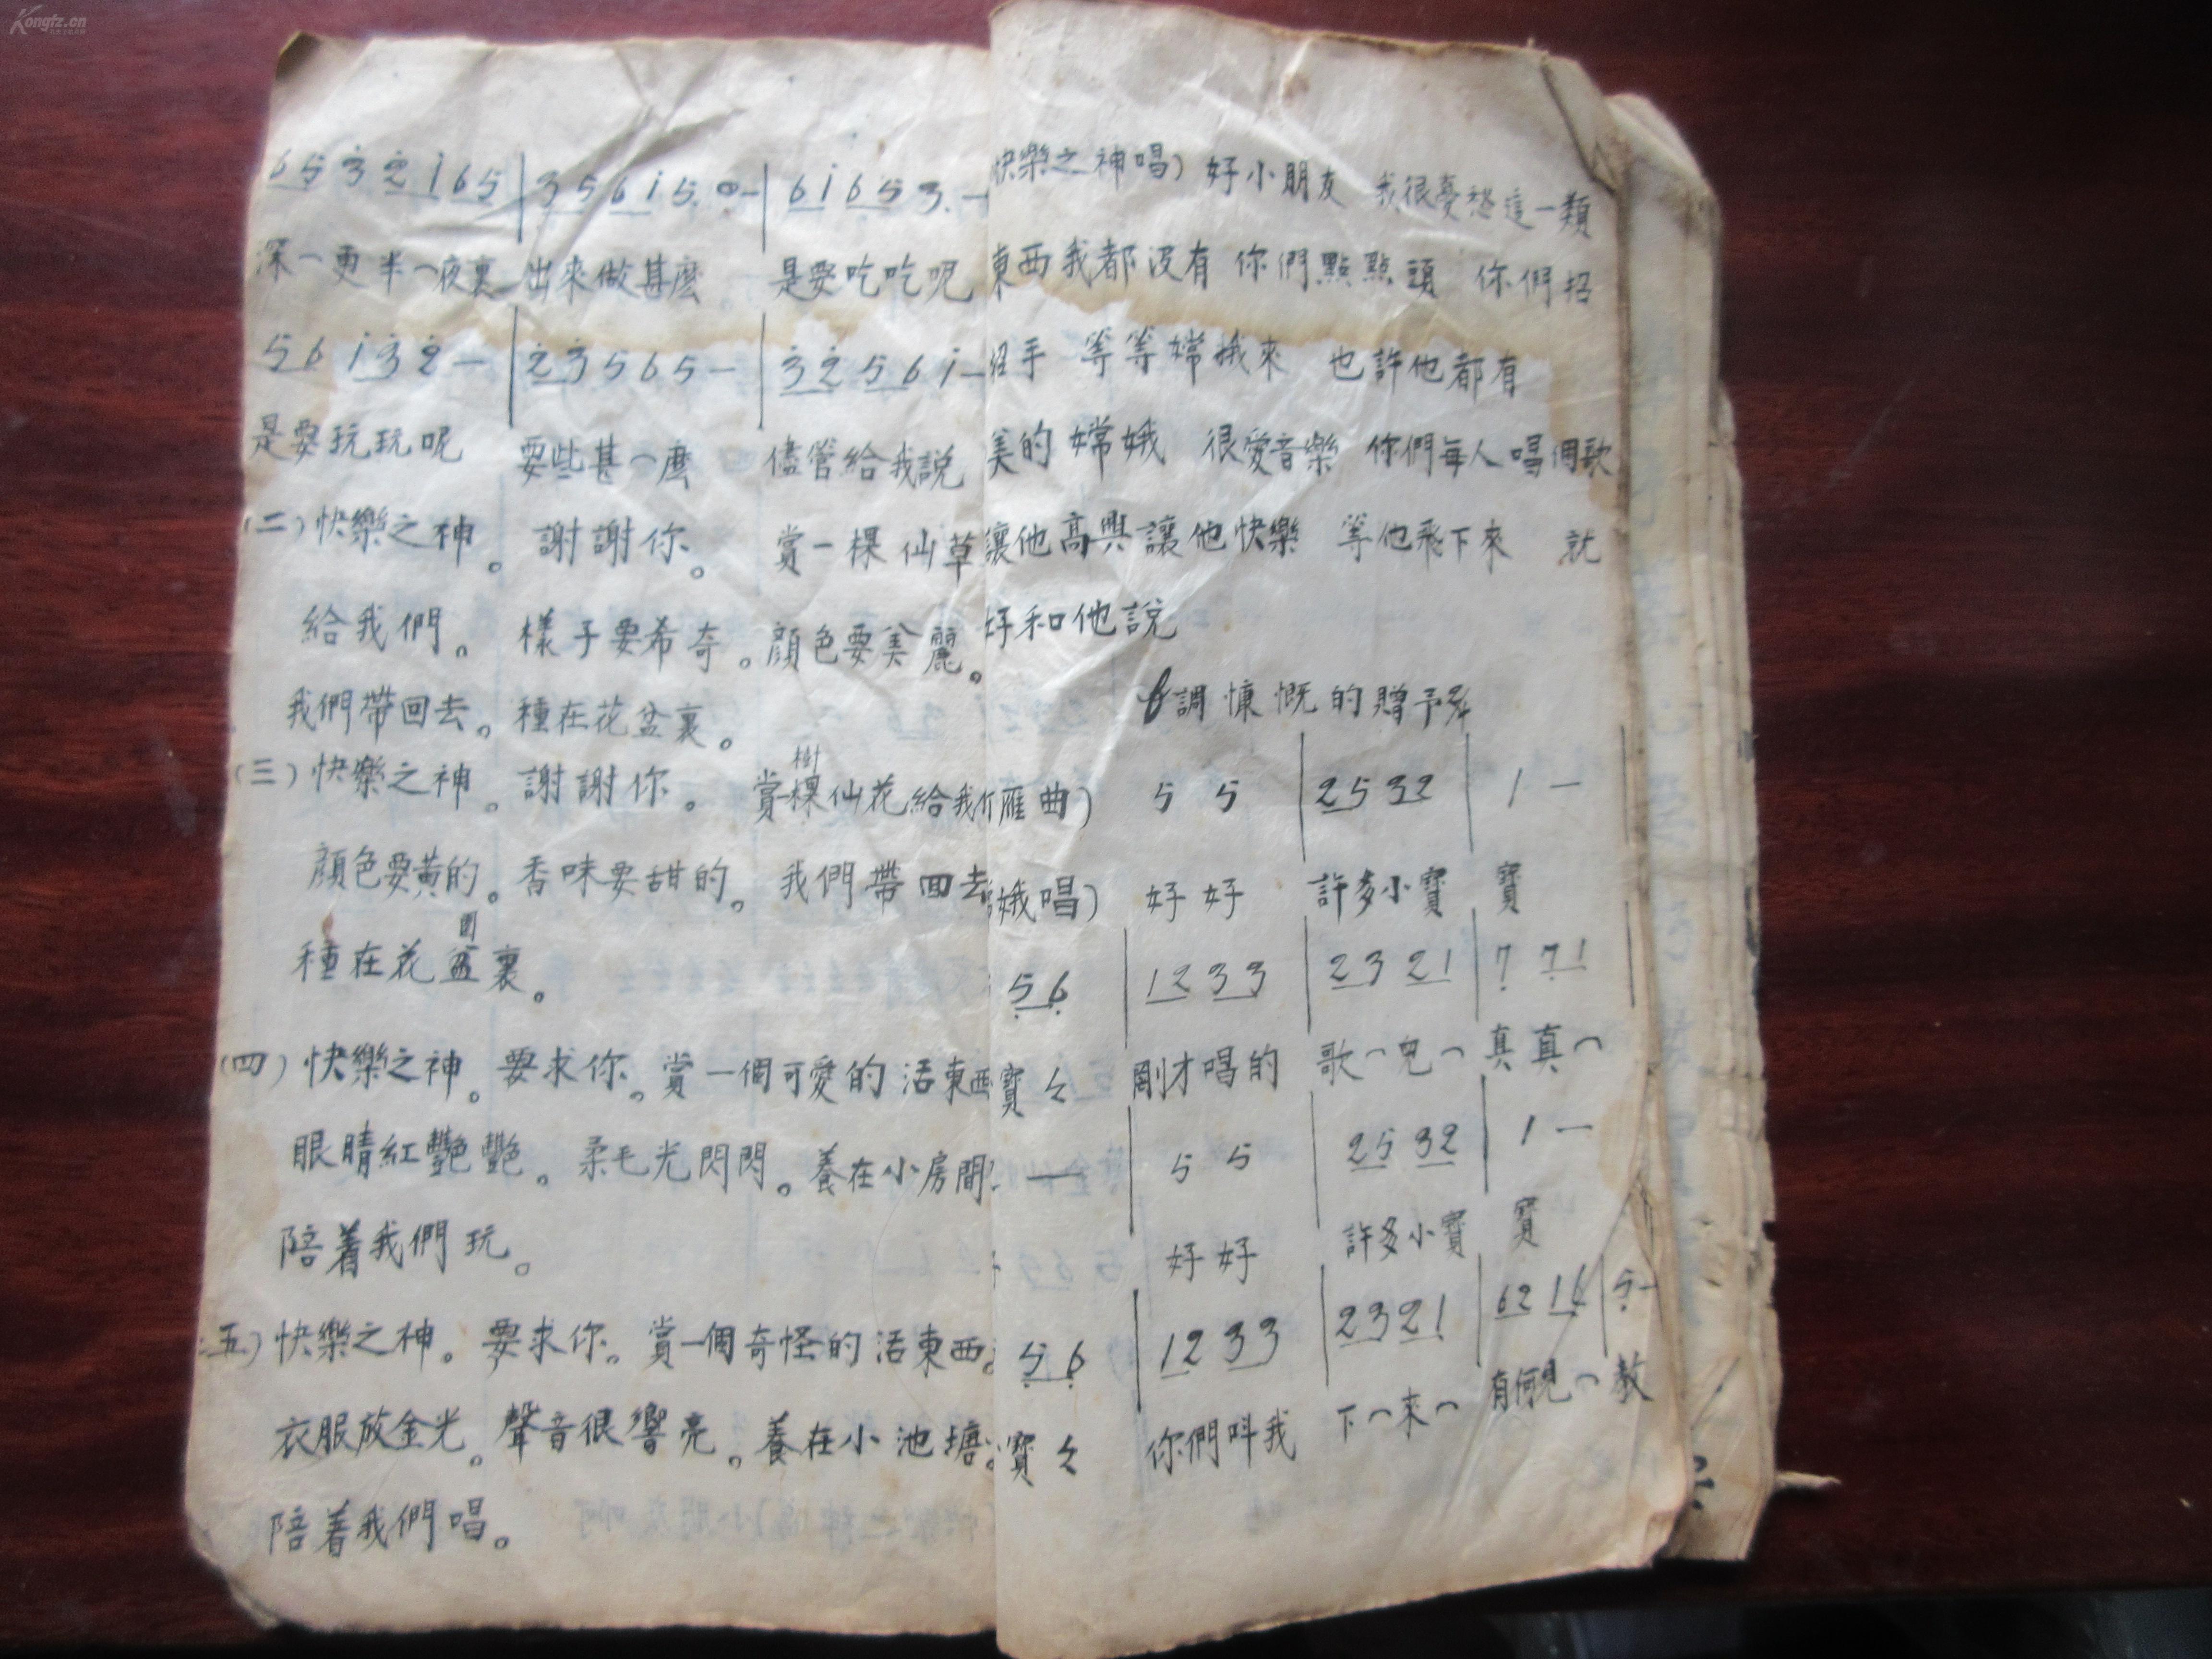 Kongfz.cn
6 5 3 2 1 6 5 | 3 5 6 1 5 0 — | 6 1 6 5 3. —
深⌒更半⌒夜裏 出來做甚麽 是要吃吃呢
5 6 1 3 2 — | 2 3 5 6 5 — | 3 2 5 6 1 —
是要玩玩呢 要些甚⌒麽 儘管給我説
(二)快樂之神。謝謝你。賞一棵仙草
給我們。樣子要希奇。顔色要美麗。
我們帶回去。種在花盆裏。
樹
(三)快樂之神。謝謝你。賞棵仙花給我
顔色要黄的。香味要甜的。我們帶回去
種在花盆裏。
(四)快樂之神。要求你。賞一個可愛的活東西
眼睛紅艷艷。柔毛光閃閃。養在小房間
陪着我們玩。
五)快樂之神。要求你。賞一個奇怪的活東西。
衣服放金光。聲音很響亮。養在小池塘
陪着我們唱。
快樂之神唱)好小朋友 我很憂愁這一類
東西我都没有 你們點點頭 你們招
手 等等嫦娥來 也許他都有
美的嫦娥 很愛音樂 你們每人唱個歌
讓他高興讓他快樂 等他飛下來 就
好和他説
調慷慨的贈予
雁曲) 5 5 | 2 5 3 2 | 1 —
娥唱) 好好 許多小寶 寶
5 6 | 1 2 3 3 | 2 3 2 1 | 7 7 1
寶々 剛才唱的 歌⌒兒⌒ 真真⌒
— 5 5 | 2 5 3 2 | 1 —
好好 許多小寶 寶
5 6 | 1 2 3 3 | 2 3 2 1 | 6 2 1 6 | 5 —
寶々 你們呌我 下⌒來⌒ 有何見⌒教